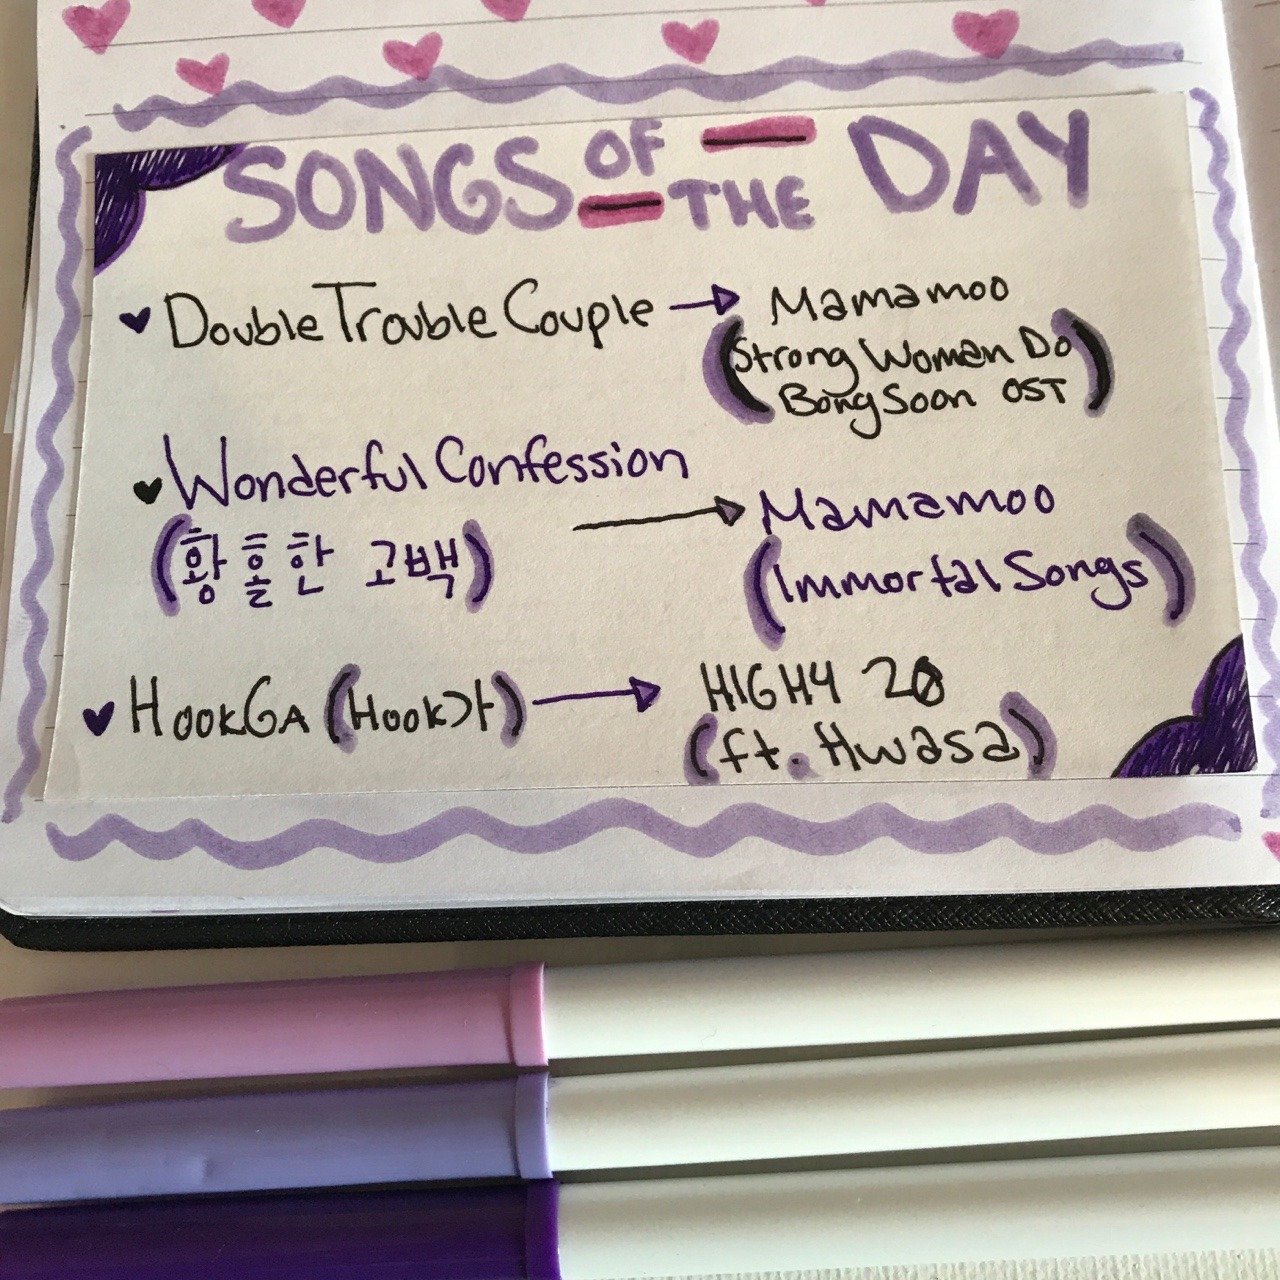 SONGS OF THE DAY
Double Trouble Couple → Mamamoo
(Strong Woman Do
Bong Soon OST)
Wonderful Confession
(황홀한 고백) → Mamamoo
(Immortal Songs)
HookGA (Hook가) → HIGH4 20
(ft. Hwasa)